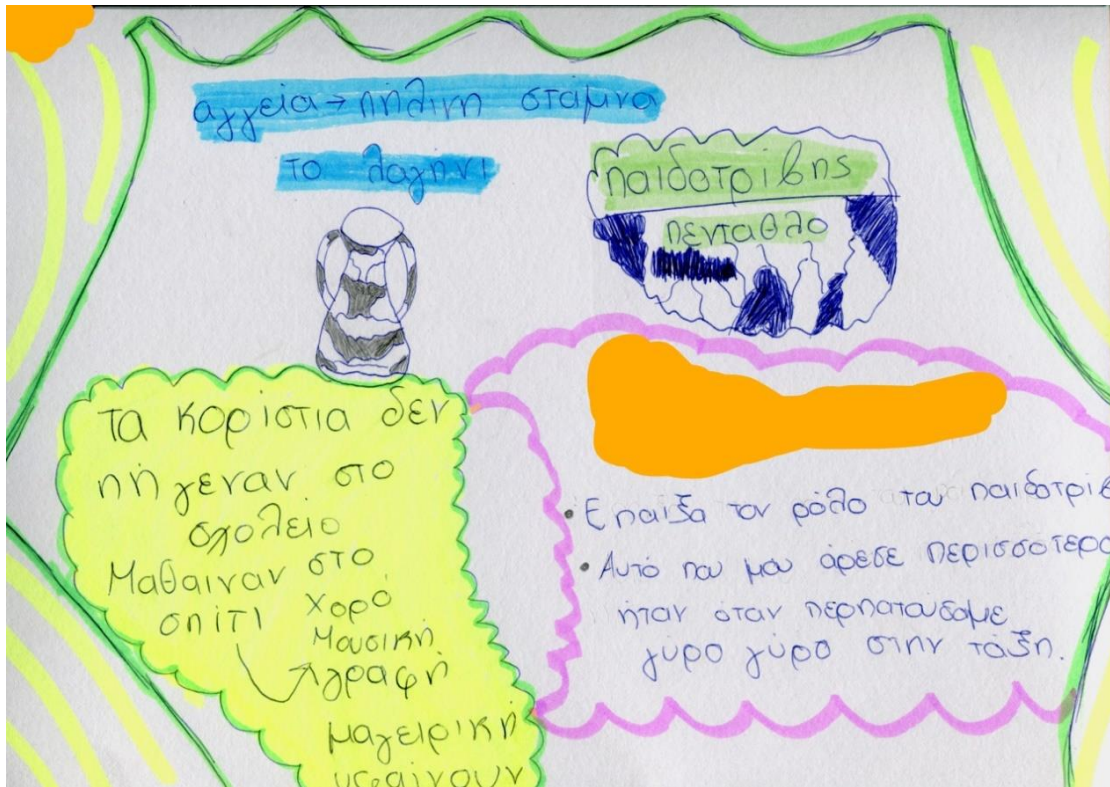 αγγεία → πήλινη στάμνα
το λαγήνι
παιδοτρίβης
πένταθλο
τα κορίστια δεν
πήγεναν στο
σχολείο
Μαθαιναν στο
σπίτι χορό
Μουσική
γραφή
μαγειρική
υφαίνουν
• Επαιξα τον ρόλο του παιδοτρίβ
• Αυτό που μου άρεσε περισσότερο
ήταν όταν περπατούσαμε
γύρο γύρο στην τάξη.